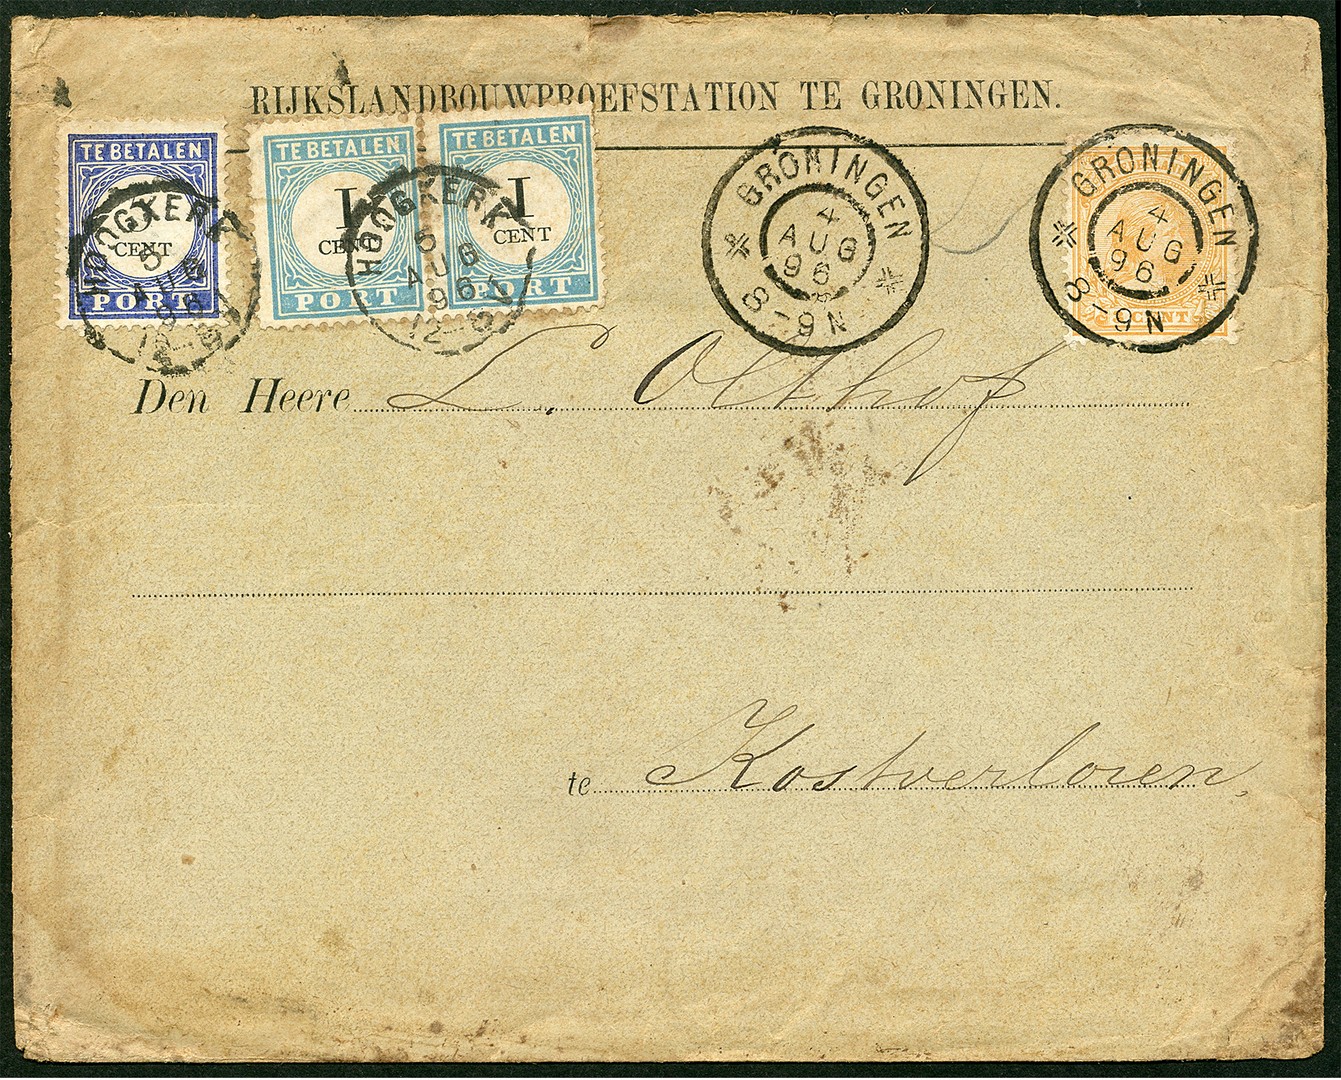 RIJKSLANDBOUWPROEFSTATION TE GRONINGEN.
TE BETALEN
5
CENT
PORT
HOOGKERK
5
AUG
96
12-5
TE BETALEN
1
CENT
PORT
TE BETALEN
1
CENT
PORT
HOOGKERK
5
AUG
96
12-5
GRONINGEN
4
AUG
96
8-9N
GRONINGEN
4
AUG
96
8-9N
CENT
Den Heere L. Olthof
te Kostverloren,